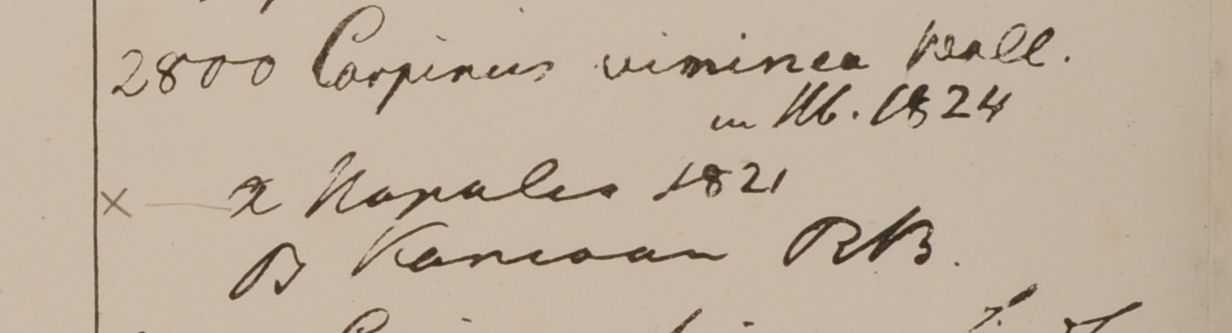 2800 Carpinus viminea Wall.
in Hb. 1824
× α Napalia 1821
β Kamoun RB.